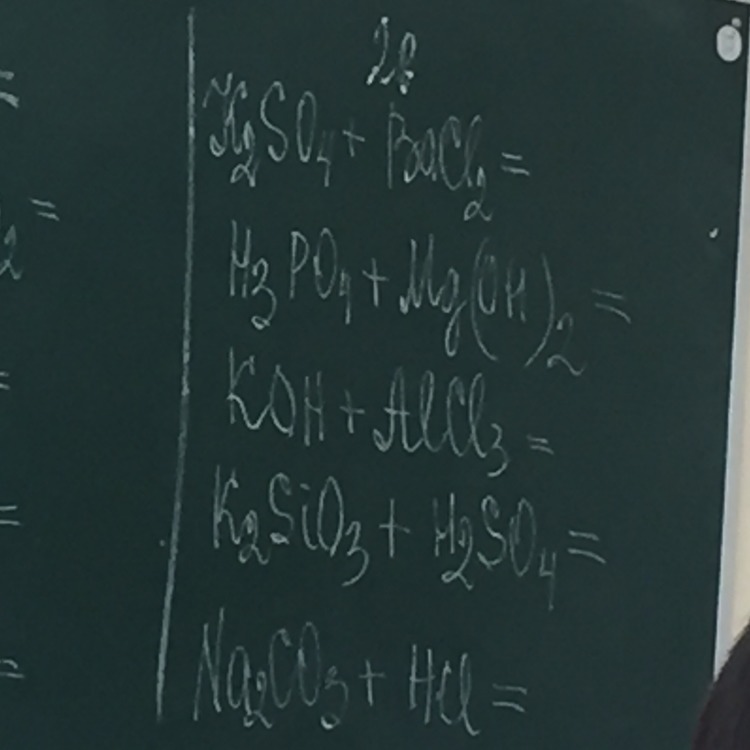 =
2 =
=
=
=
2в
K₂SO₄ + BaCl₂ =
H₃PO₄ + Mg(OH)₂ =
KOH + AlCl₃ =
K₂SiO₃ + H₂SO₄ =
Na₂CO₃ + HCl =